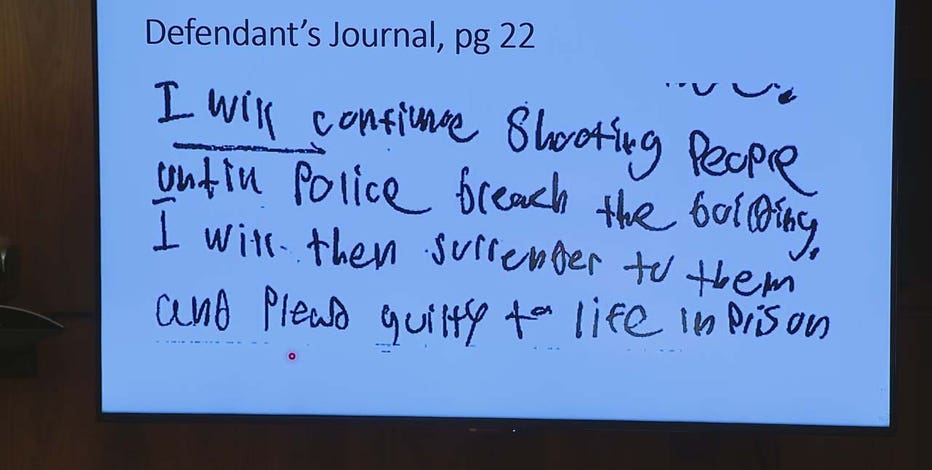 Defendant's Journal, pg 22
I will continue Shooting People
until Police breach the building,
I will then surrender to them
and Plead guilty to life in Prison